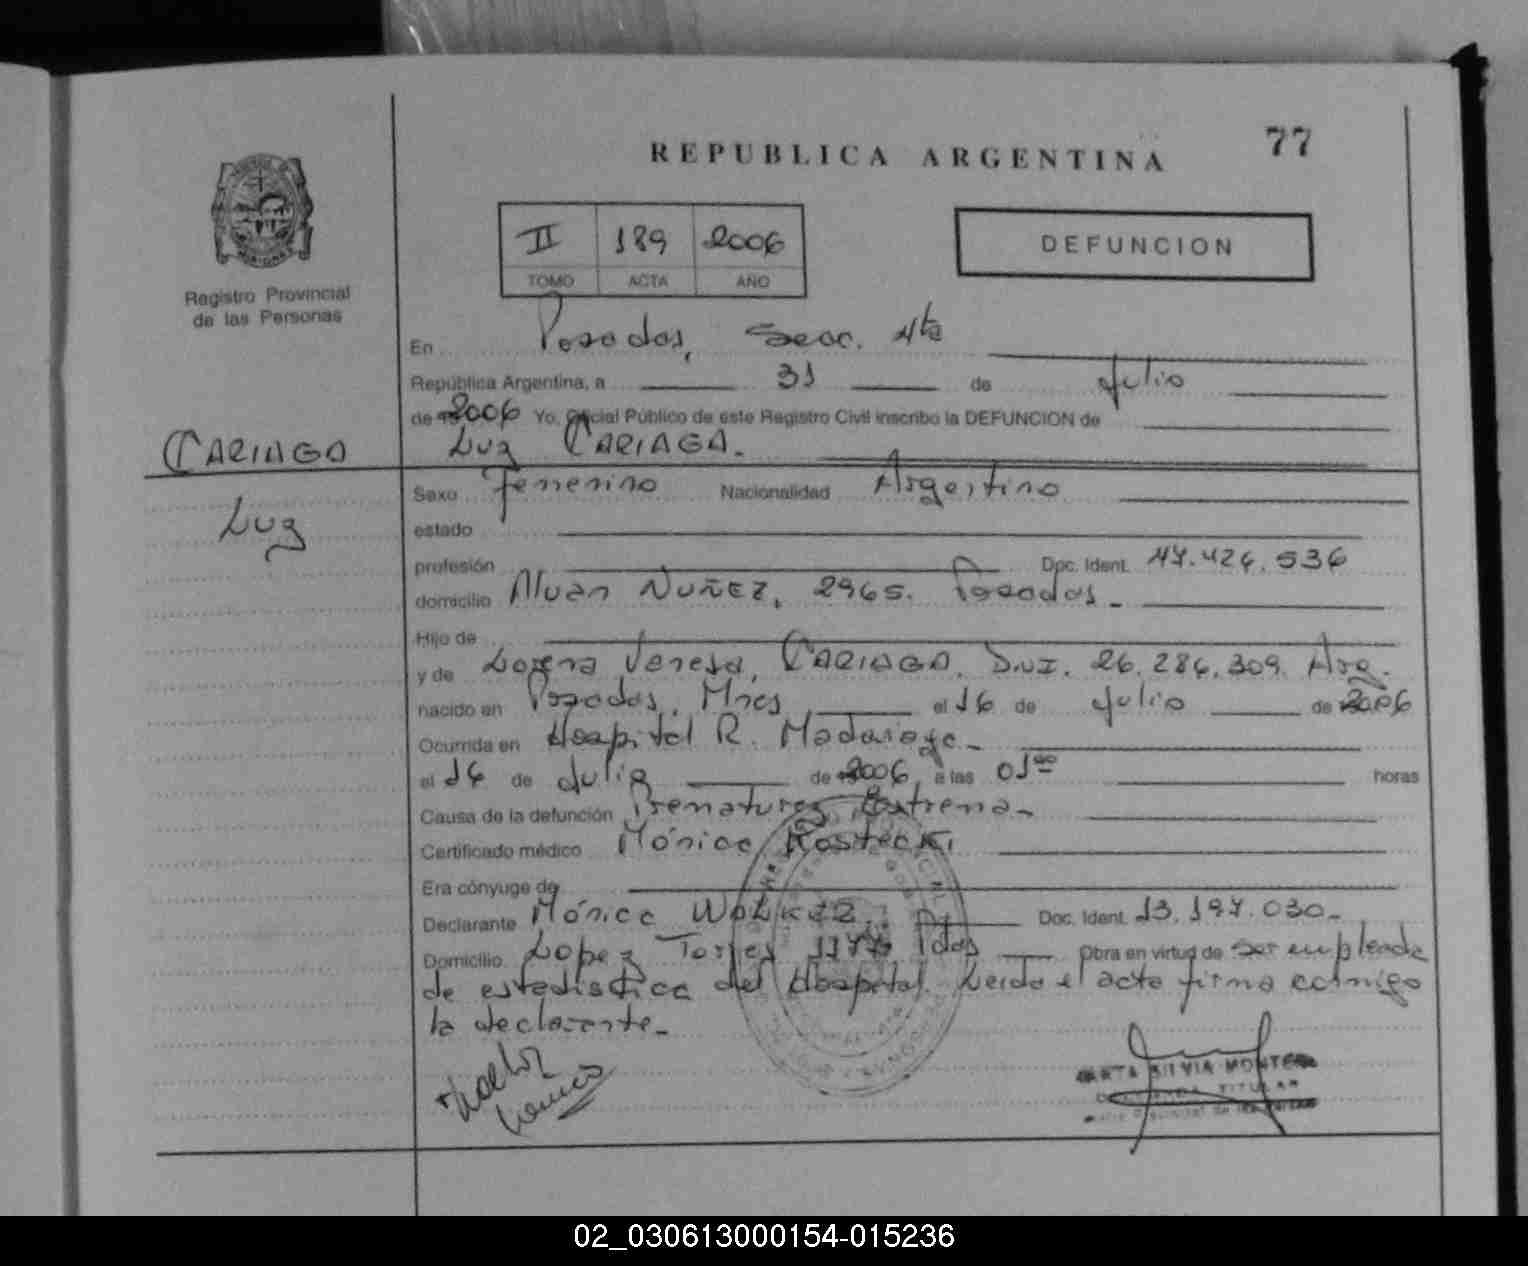 77
REPUBLICA ARGENTINA
II 189 2006
TOMO ACTA AÑO
DEFUNCION
Registro Provincial
de las Personas
En Posadas, Secc. 4ta
República Argentina, a 31 de Julio
de 2006 Yo, Oficial Público de este Registro Civil inscribo la DEFUNCION de
CARIAGA
Luz CARIAGA.
Luz
Sexo femenino Nacionalidad Argentina
estado
profesión Doc. Ident. 47.424.536
domicilio Alvar NUÑEZ, 2965. Posadas -
Hijo de
y de Lorena Vanesa, CARIAGA, D.N.I. 26.286.309. Arg.
nacido en Posadas, Mnes el 16 de Julio de 2006
Ocurrida en Hospital R. Madariaga -
el 16 de Julio de 2006, a las 01 horas
Causa de la defunción Prematurez Extrema -
Certificado médico Mónica Kostecki
Era cónyuge de
Declarante Mónica Doc. Ident. 13.197.030 -
Domicilio Lopez Torres Pdas Obra en virtud de ser empleada
de estadistica del Hospital. Leida el acta firma conmigo
la declarante -
MARTA SILVIA MONTERO
TITULAR
02_030613000154-015236